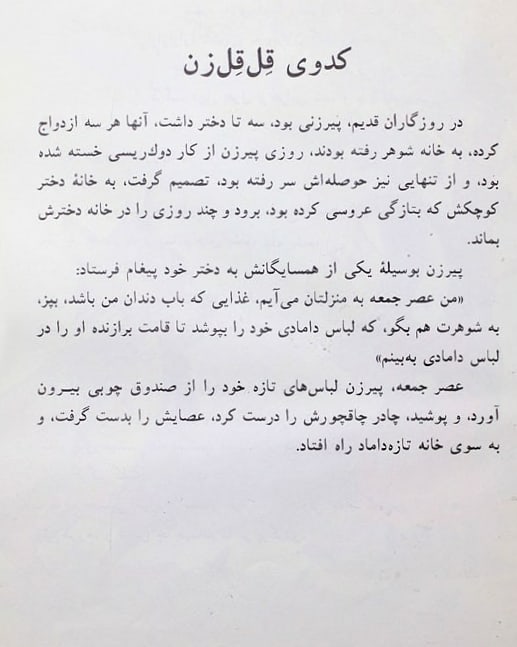 کدوی قِل‌قِل‌زن
در روزگاران قدیم، پیرزنی بود، سه تا دختر داشت، آنها هر سه ازدواج
کرده، به خانه شوهر رفته بودند، روزی پیرزن از کار دوك‌ریسی خسته شده
بود، و از تنهایی نیز حوصله‌اش سر رفته بود، تصمیم گرفت، به خانهٔ دختر
کوچکش که بتازگی عروسی کرده بود، برود و چند روزی را در خانه دخترش
بماند.
پیرزن بوسیلهٔ یکی از همسایگانش به دختر خود پیغام فرستاد:
«من عصر جمعه به منزلتان می‌آیم، غذایی که باب دندان من باشد، بپز،
به شوهرت هم بگو، که لباس دامادی خود را بپوشد تا قامت برازنده او را در
لباس دامادی به‌بینم»
عصر جمعه، پیرزن لباس‌های تازه خود را از صندوق چوبی بیـرون
آورد، و پوشید، چادر چاقچورش را درست کرد، عصایش را بدست گرفت، و
به سوی خانه تازه‌داماد راه افتاد.